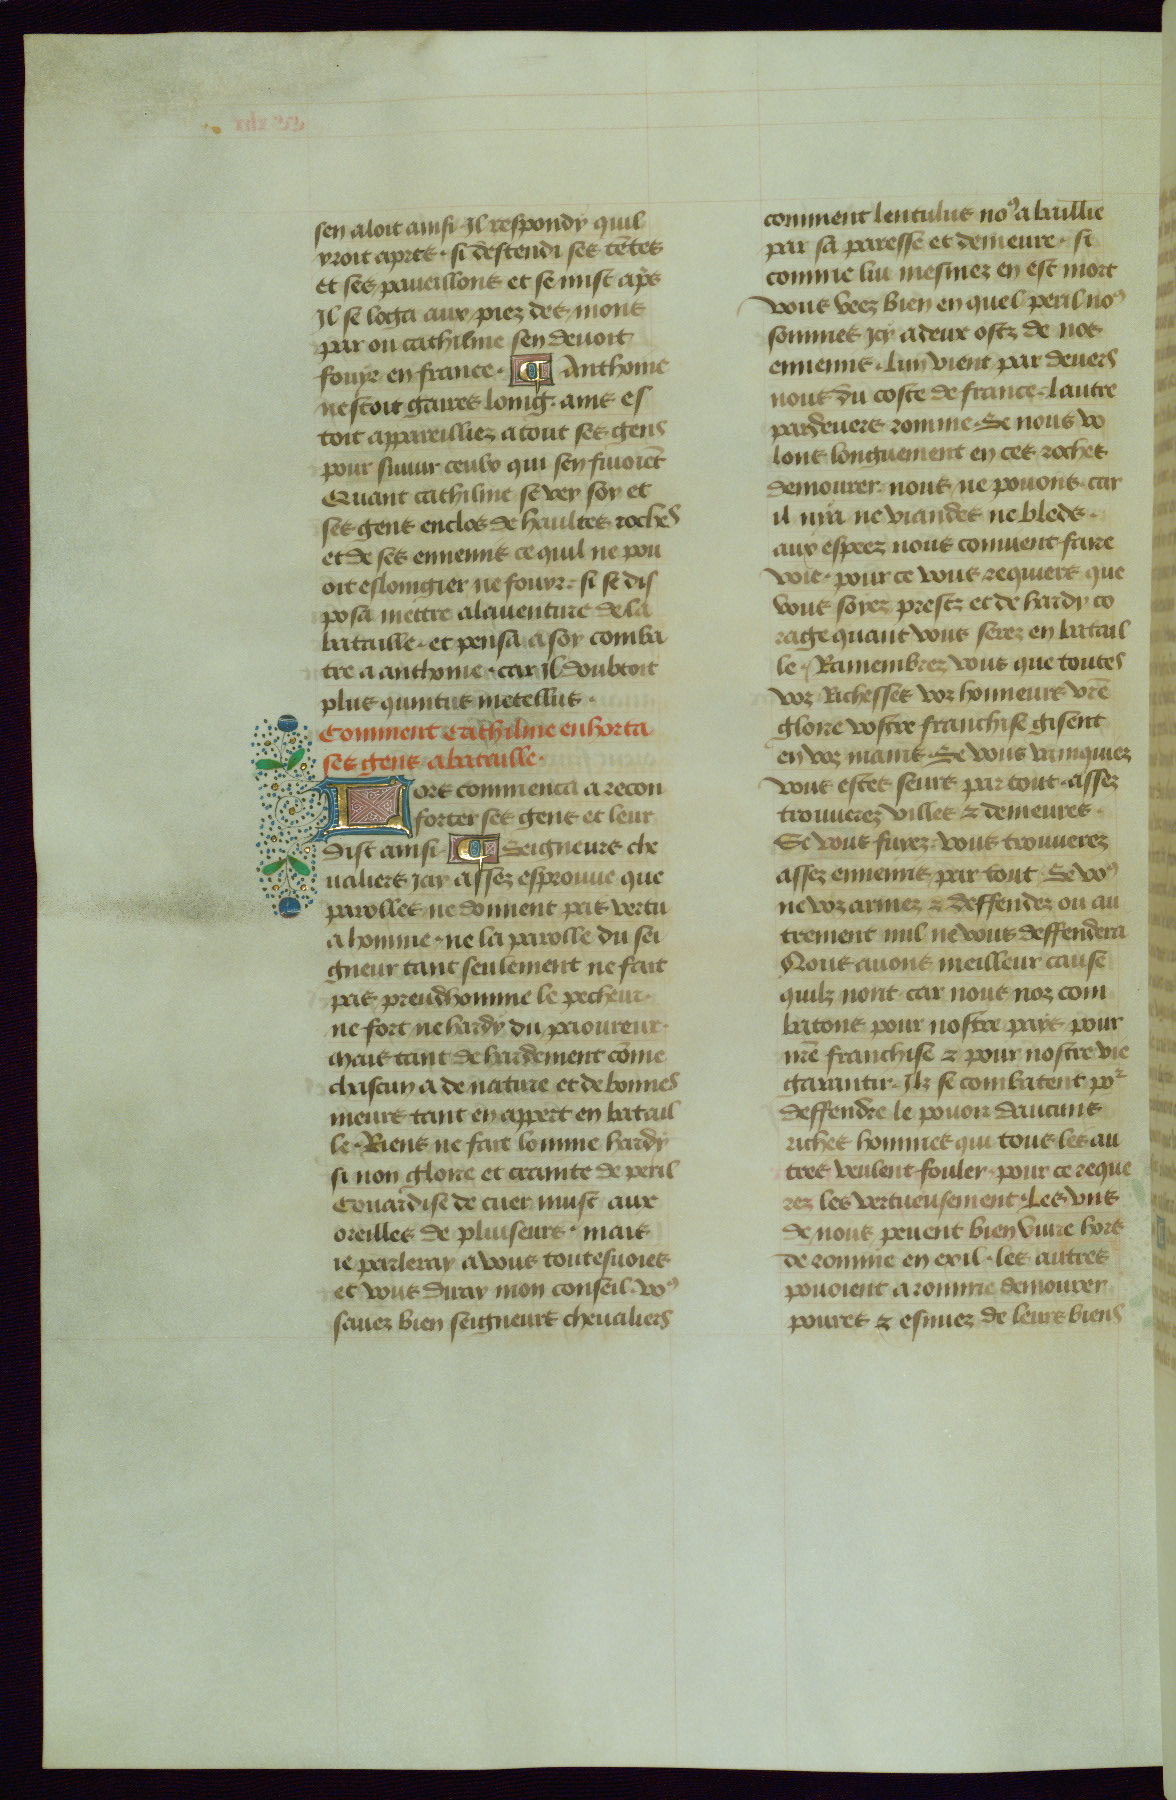 sen aloit ainsi Il respondy quil
yroit apres · si destendi ses tētes
et ses paueillons et se mist ap̄s
Il se loga aux piez des mons
par ou cathiline sen deuoit
fouyr en france · ¶ Anthoine
nestoit gaires loing · ains es
toit appareilliez a tout ses gens
pour siuuir ceulx qui sen fuioiēt
Quant cathiline se vey soy et
ses gens enclos de haultes roches
et de ses ennemis ce quil ne pou
oit eslongier ne fouyr · si se dis
posa mettre a lauenture de la
bataille · et pensa a soy comba
tre a anthoine · car il doubtoit
plus quintus metellus ·
Comment Cathiline enhorta
ses gens a bataille ·
Lors commenca a recon
forter ses gens et leur
dist ainsi · ¶ Seigneurs che
ualiers jay assez esprouue que
parolles ne donnent pas vertu
a homme · ne la parolle du sei
gneur tant seulement ne fait
pas preudhomme le pecheur ·
ne fort ne hardy du paoureux ·
Mais tant de hardement cōme
chascun a de nature et de bonnes
meurs tant en appert en batail
le · Riens ne fait lomme hardy
si non gloire et crainte de peril
Couardise de cuer nuist aux
oreilles de pluiseurs · mais
ie parleray a vous toutesuoies
et vous diray mon conseil · vo⁹
sauez bien seigneurs cheualiers
comment lentulus no⁹ a baillie
par sa paresse et demeure · si
comme lui mesmez en est mort
vous veez bien en quel peril no⁹
sommes icy a deux ostz de nos
ennemis · lun vient par deuers
nous du coste de france · lautre
pardeuers romme · Se nous vo
lons longuement en ces roches
demourer nous ne pouons · car
il ny a ne viandes ne bleds ·
aux espeez nous conuient faire
voie · pour ce vous requiers que
vous soyez prestz et de hardy co
rage quant vous serez en batail
le · Ramembrez vous que toutes
voz richesses voz honneurs vr̄e
gloire vostre franchise gisent
en voz mains · Se vous vainquiez
vous estes seurs par tout · assez
trouuerez villes ⁊ demeures ·
Se vous fuyez · vous trouuerez
assez ennemis par tout Se vo⁹
ne voz armez ⁊ deffendez ou au
trement nul ne vous deffendera
Nous auons meilleur cause
quilz nont · car nous noz com
batons pour nostre pays pour
nr̄e franchise ⁊ pour nostre vie
garantir · Ilz se combatent poʳ
deffendre le pouoir daucuns
riches hommes qui tous les au
tres veulent fouler · pour ce reque
rez les vertueusement · Les vns
de nous peuent bien viure hors
de romme en exil · les autres
pouoient a romme demourer
poures ⁊ esmuez de leurs biens